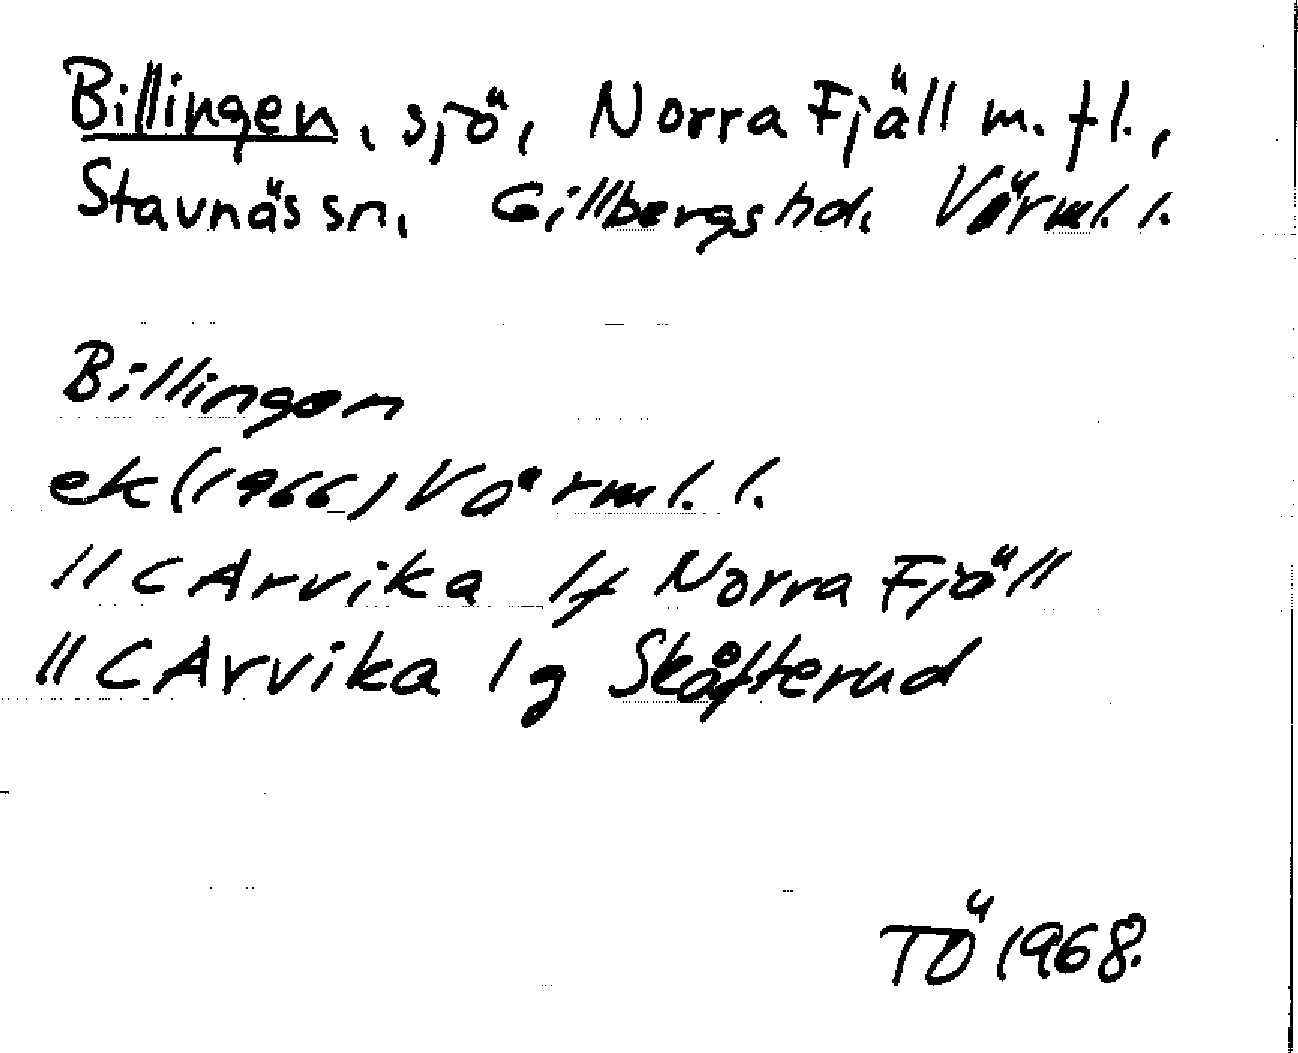 Billingen, sjö, Norra Fjäll m. fl.,
Stavnäs sn, Gillbergs hd, Värml. l.
Billingen
ek (1966) Värml. l.
11 C Arvika 1f Norra Fjäll
11 C Arvika 1g Skåfterud
TÖ 1968.